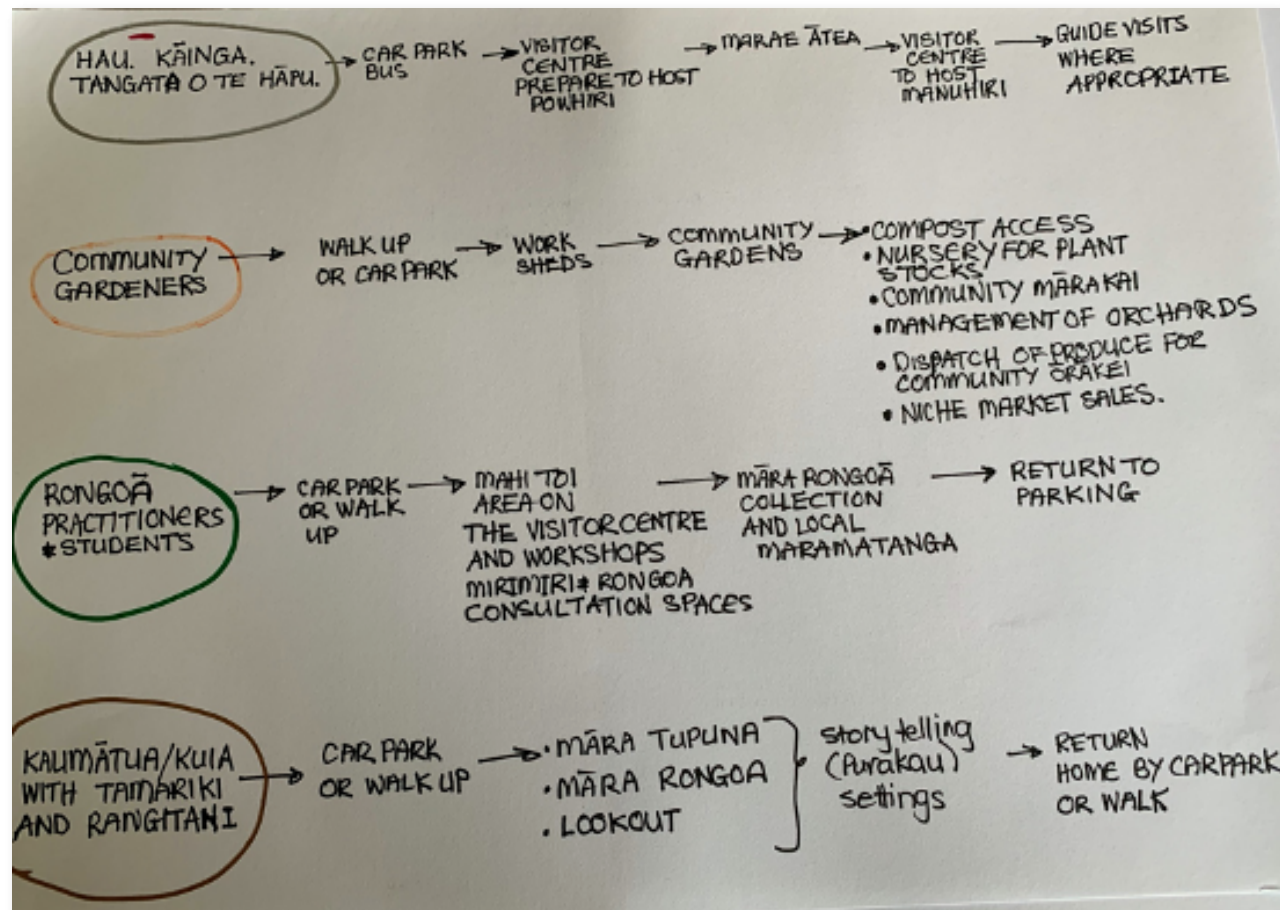 HAU. KĀINGA.
TANGATA O TE HĀPU.
CAR PARK
BUS
VISITOR
CENTRE
PREPARE TO HOST
POWHIRI
MARAE ĀTEA
VISITOR
CENTRE
TO HOST
MANUHIRI
GUIDE VISITS
WHERE
APPROPRIATE
COMMUNITY
GARDENERS
WALK UP
OR CAR PARK
WORK
SHEDS
COMMUNITY
GARDENS
• COMPOST ACCESS
• NURSERY FOR PLANT
STOCKS
• COMMUNITY MĀRAKAI
• MANAGEMENT OF ORCHARDS
• DISPATCH OF PRODUCE FOR
COMMUNITY ŌRĀKEI
• NICHE MARKET SALES.
RONGOĀ
PRACTITIONERS
& STUDENTS
CAR PARK
OR WALK
UP
MAHI TOI
AREA ON
THE VISITOR CENTRE
AND WORKSHOPS
MIRIMIRI & RONGOA
CONSULTATION SPACES
MĀRA RONGOĀ
COLLECTION
AND LOCAL
MARAMATANGA
RETURN TO
PARKING
KAUMĀTUA/KUIA
WITH TAMARIKI
AND RANGITAHI
CAR PARK
OR WALK UP
• MĀRA TUPUNA
• MĀRA RONGOA
• LOOKOUT
story telling
(Purakau)
settings
RETURN
HOME BY CARPARK
OR WALK